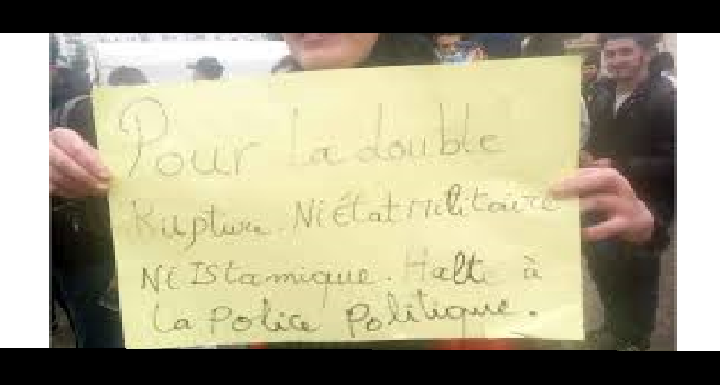 Pour La double
Rupture. Ni État Militaire
Ni Islamique. Halte à
La Police Politique.